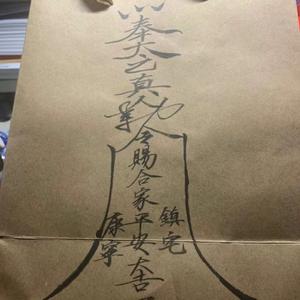 奉太乙真人
令賜合家平安大吉
鎮宅
康寧